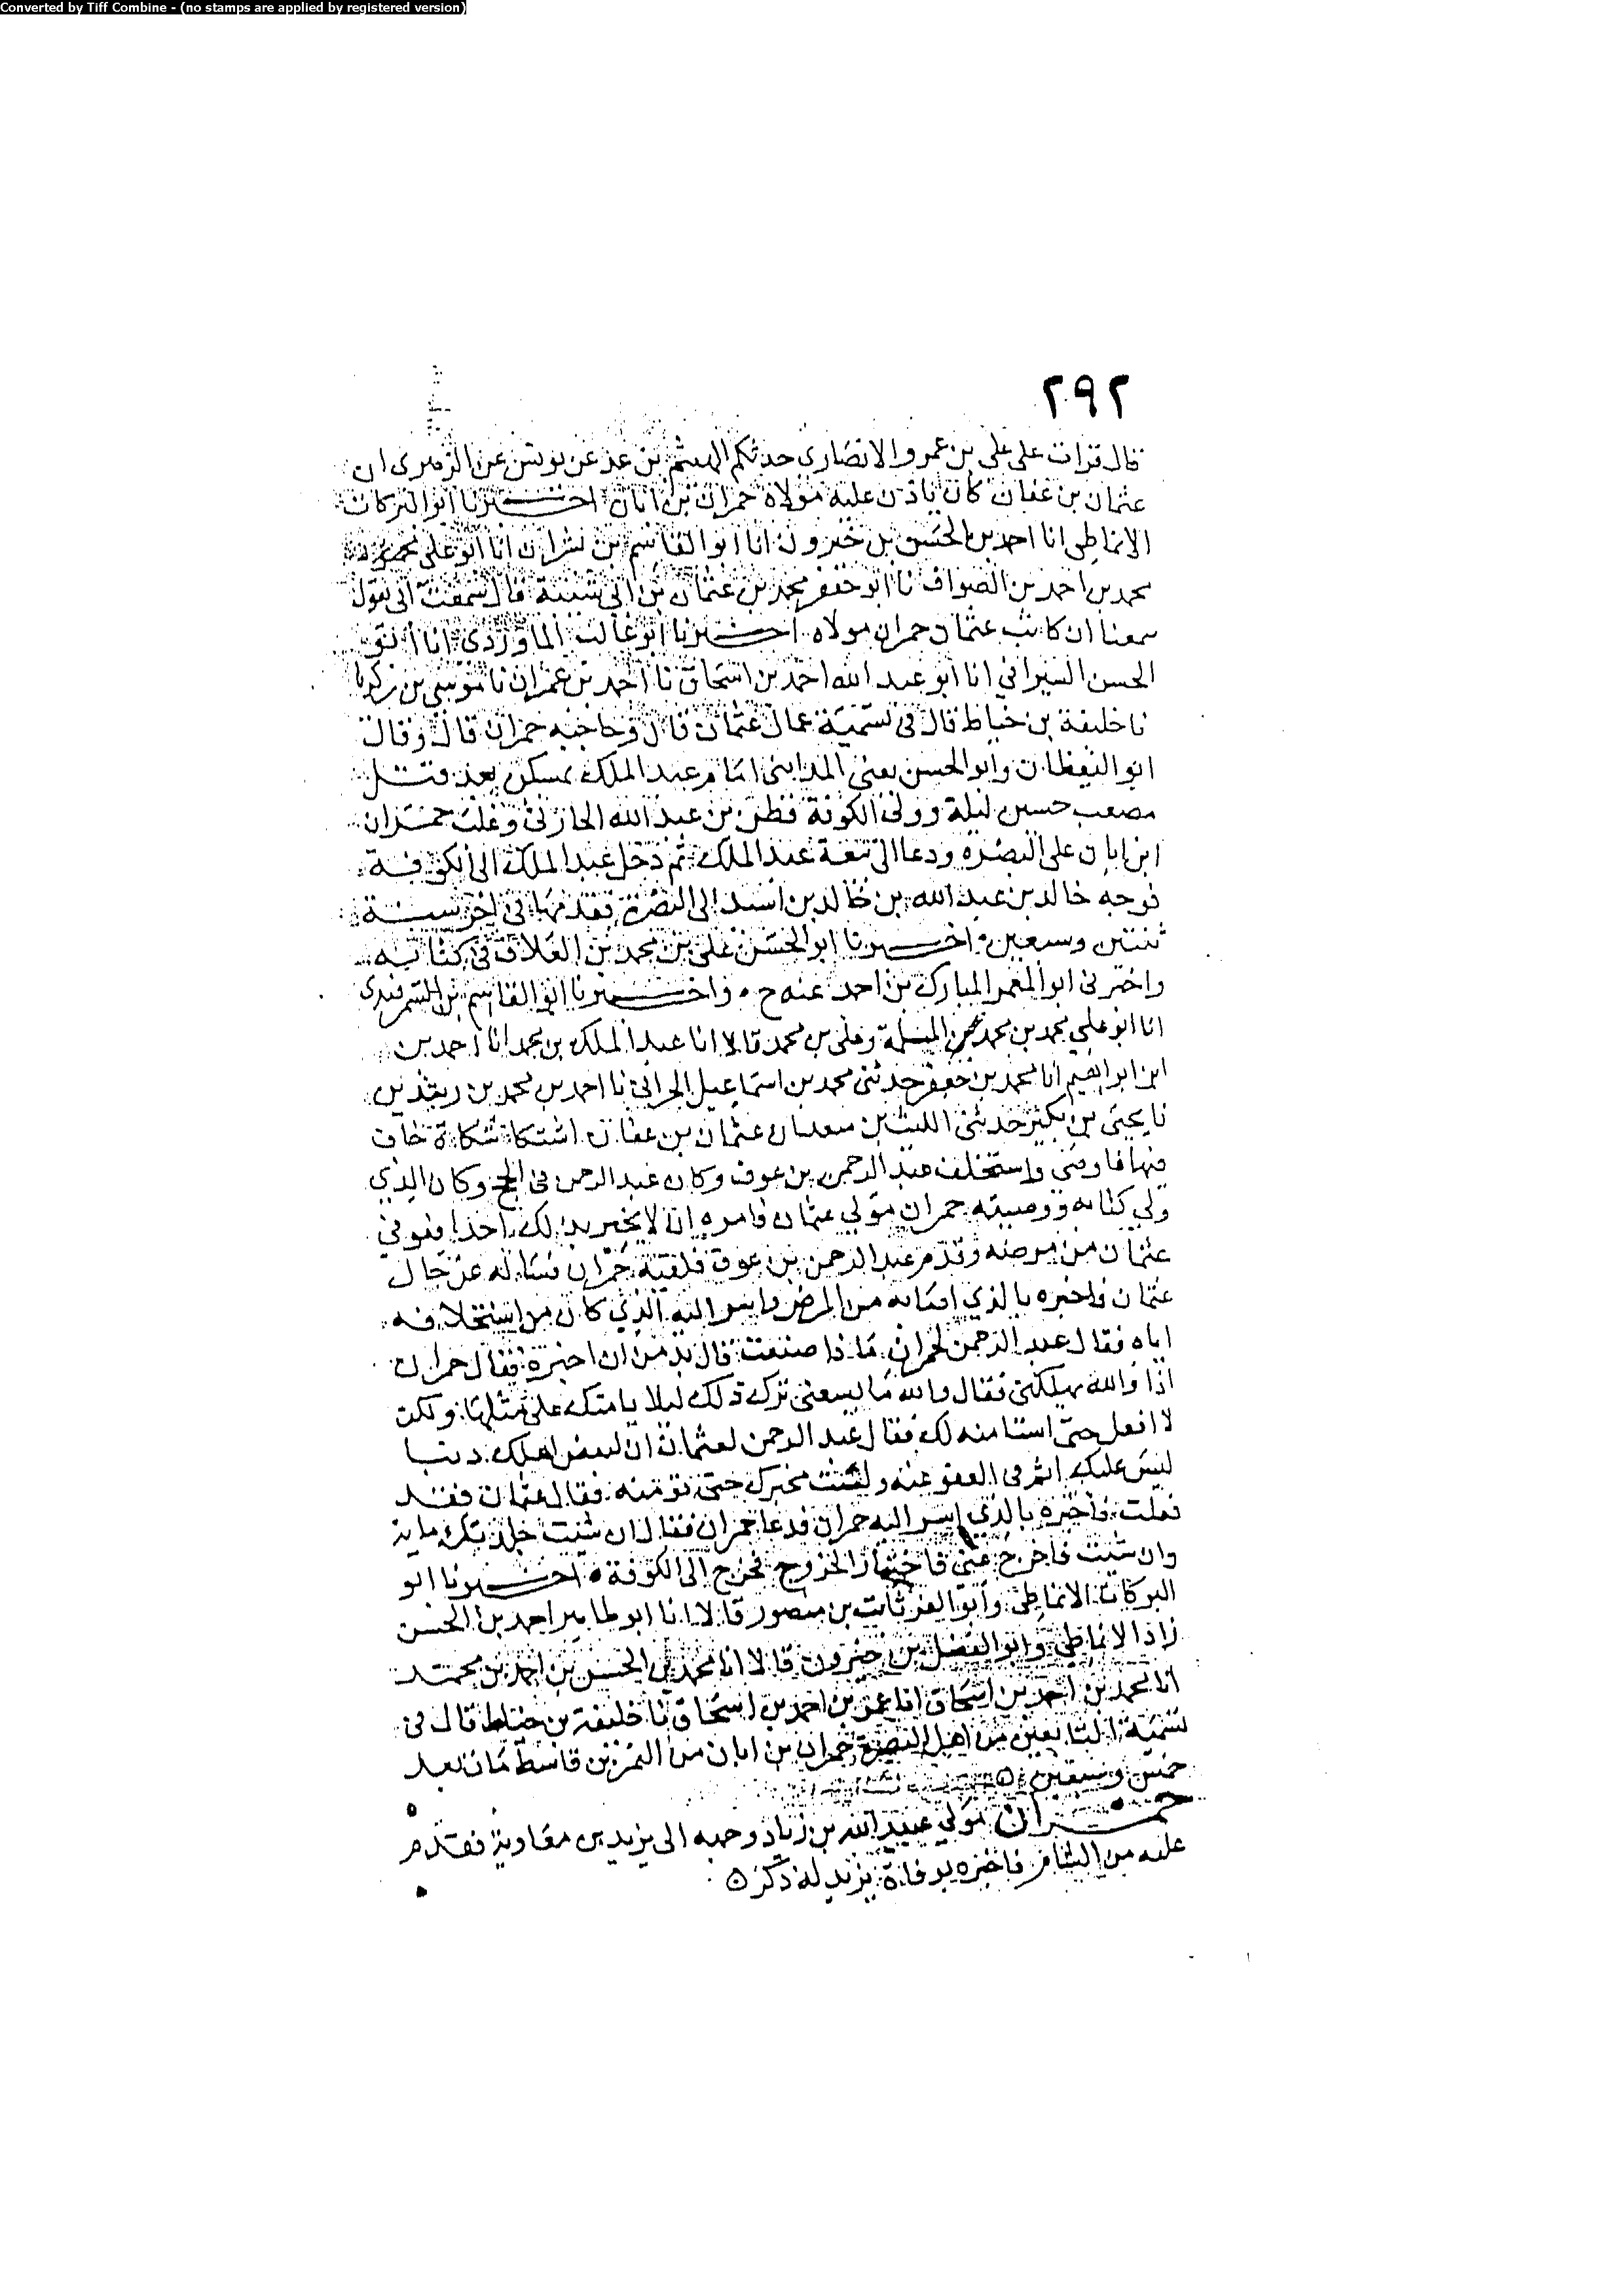 Converted by Tiff Combine - (no stamps are applied by registered version)
٢٩٢
قال قرات على علي بن عمرو الانصاري حدثكم الهيثم بن عدي عن يونس عن الزهري ان
عثمان بن عفان كان ياذن عليه مولاه حمران بن ابان اخبرنا ابو البركات
الانماطي انا احمد بن الحسن بن خيرون انا ابو القاسم بن بشران انا ابو علي
محمد بن احمد بن الصواف نا ابو جعفر محمد بن عثمان بن ابي شيبة قال سمعت ابي يقول
سمعنا ان كاتب عثمان حمران مولاه اخبرنا ابو غالب الماوردي انا
الحسن السيرافي انا ابو عبد الله احمد بن اسحاق نا احمد بن عمران نا موسى بن زكريا
نا خليفة بن خياط قال في تسمية عمال عثمان قال وحاجبه حمران قال وقال
ابو اليقظان وابو الحسن يعني المدايني اقام عبد الملك بمسكن بعد قتل
مصعب خمسين ليلة وولى الكوفة قطن بن عبد الله الحارثي وغلب حمران
ابن ابان على البصرة ودعا الى بيعة عبد الملك ثم دخل عبد الملك الى الكوفة
فوجه خالد بن عبد الله بن خالد بن اسيد الى البصرة فقدمها في اخر سنة
ثنتين وسبعين اخبرنا ابو الحسن علي بن محمد بن العلاف في كتابه
واخبرني ابو المعمر المبارك بن احمد عنه ح واخبرنا ابو القاسم بن السمرقندي
انا ابو علي محمد بن محمد بن المسلمة وعلي بن محمد قالا انا عبد الملك بن محمد انا احمد بن
ابن ابراهيم انا محمد بن جعفر حدثني محمد بن اسماعيل الحراني نا احمد بن محمد بن رشدين
نا يحيى بن بكير حدثني الليث بن سعد ان عثمان بن عفان اشتكا شكاة خاف
فيها فاوصى واستخلف عبد الرحمن بن عوف وكان عبد الرحمن في الحج وكان الذي
ولي كتابه ووصيته حمران مولى عثمان فامره ان لا يخبر بذلك احدا فعوفي
عثمان من مرضه وقدم عبد الرحمن بن عوف فلقيه حمران فساله عن حال
عثمان فاخبره بالذي اصابه من المرض واسر اليه الذي كان من استخلافه
اياه فقال عبد الرحمن لحمران ماذا صنعت قال بد من ان اخبره فقال حمران
اذا والله يهلكني فقال والله ما يسعني ترك ذلك ليلا يامنك على مثلها ولكن
لا افعل حتى استامنه لك فقال عبد الرحمن لعثمان ان لبعض اهلك ذنبا
ليس عليك اثم في العفو عنه ولست مخبرك حتى تومنه فقال عثمان فقد
فعلت فاخبره بالذي اسر اليه حمران فدعا حمران فقال ان شيت جلدتك ماية
وان شيت فاخرج عني فاختار الخروج فخرج الى الكوفة اخبرنا ابو
البركات الانماطي وابو العز ثابت بن منصور قالا انا ابو طاهر احمد بن الحسن
زاد الانماطي وابو الفضل بن خيرون قالا انا محمد بن الحسن بن احمد بن محمد
انا محمد بن احمد بن اسحاق انا عمر بن احمد بن اسحاق نا خليفة بن خياط قال في
تسمية التابعين من اهل البصرة حمران بن ابان من النمر بن قاسط مات بعد
خمس وسبعين
حمران مولى عبيد الله بن زياد وجهه الى يزيد بن معاوية فقدم
عليه من الشام فاخبره بوفاة يزيد له ذكر